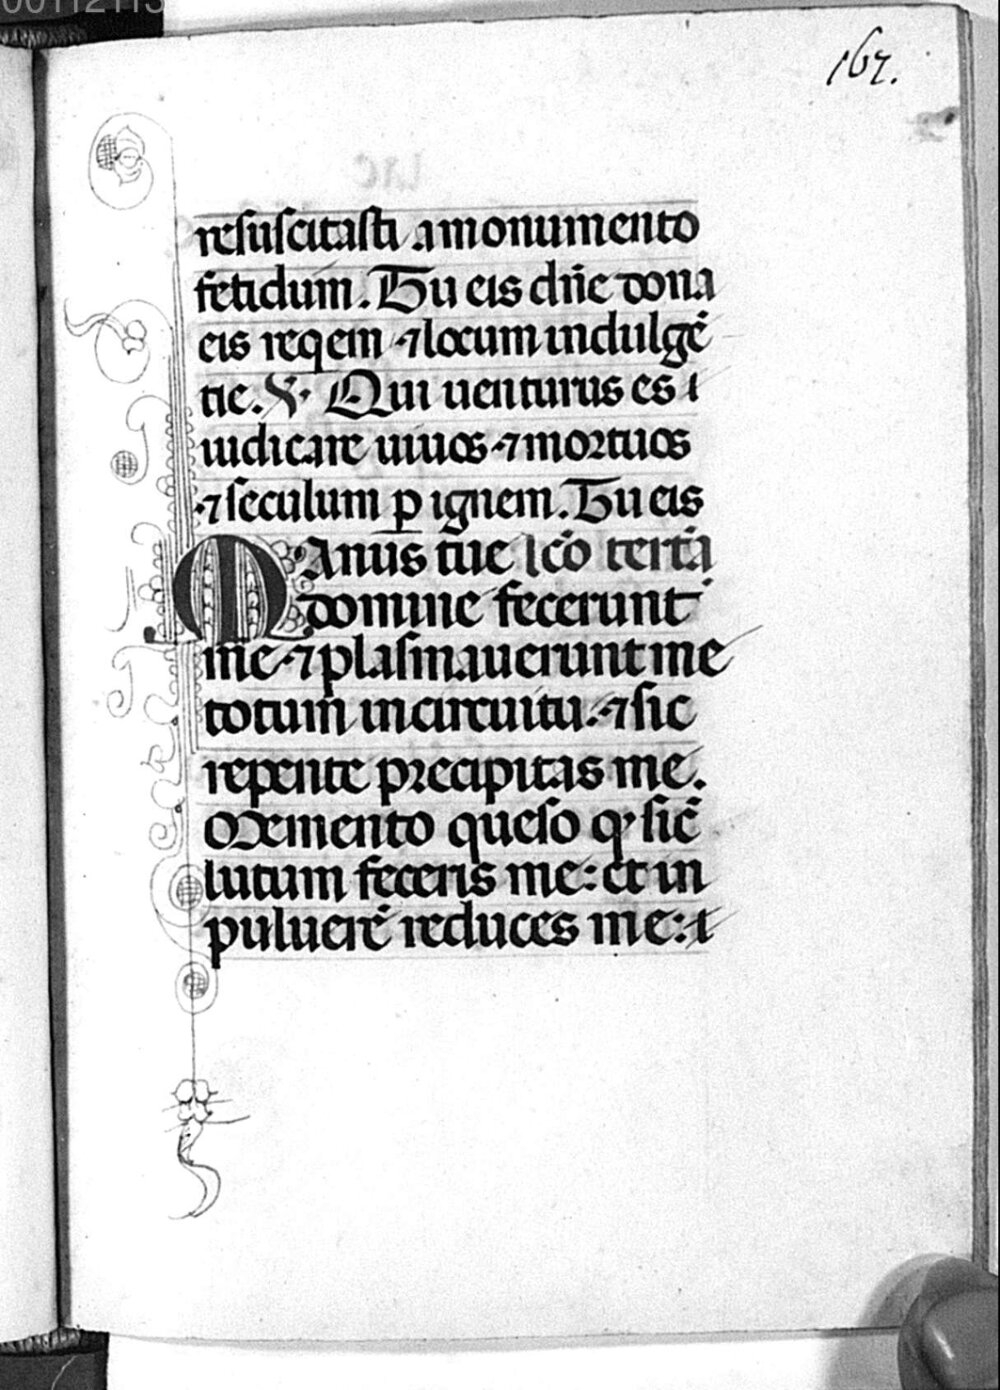 00112113
167.
resuscitasti amonumento
fetidum. Tu eis dn̄e dona
eis reqem ⁊locum indulgē
tie. ℣. Qui uenturus es i
iudicare uiuos ⁊mortuos
⁊seculum ꝑ ignem. Tu eis
Manus tue lc̄o tertia
domine fecerunt
me ⁊plasmauerunt me
totum incircuitu. ⁊sic
repente precipitas me.
Memento queso q sic̄
lutum feceris me: et in
puluerē reduces me: i